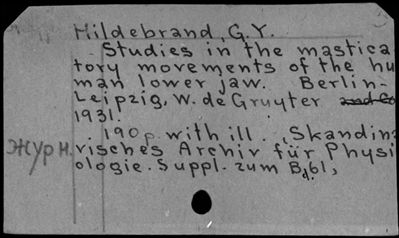 Hildebrand, G.Y.
Studies in the mastica
tory movements of the hu
man lower jaw. Berlin-
Leipzig, W. de Gruyter and Co
1931.
190 p. with ill. (Skandina
Журн. visches Archiv für Physi
ologie. Suppl. zum Bd 61,